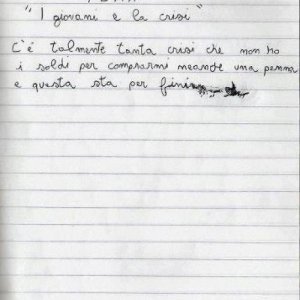 "I giovani e la crisi"
C'è talmente tanta crisi che non ho
i soldi per comprarmi neanche una penna
e questa sta per fini